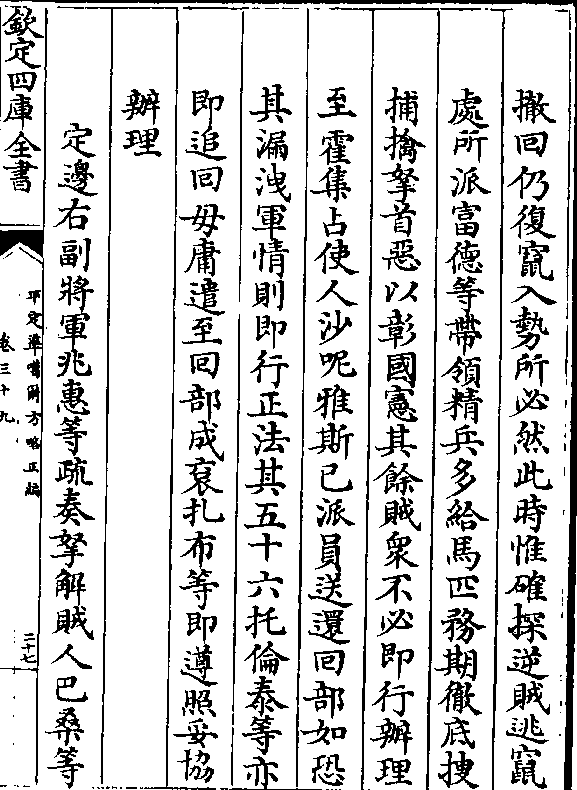 撤回仍復竄入勢所必然此時惟確探逆賊逃竄
處所派富德等帶領精兵多給馬匹務期徹底搜
捕擒拏首惡以彰國憲其餘賊衆不必即行辦理
至霍集占使人沙呢雅斯已派員送還回部如恐
其漏洩軍情則即行正法其五十六托倫泰等亦
即追回毋庸遣至回部成衮扎布等即遵照妥協
辦理
定邊右副將軍兆惠等疏奏拏解賊人巴桑等
欽定四庫全書
平定準噶爾方略正編
卷三十九
二十七